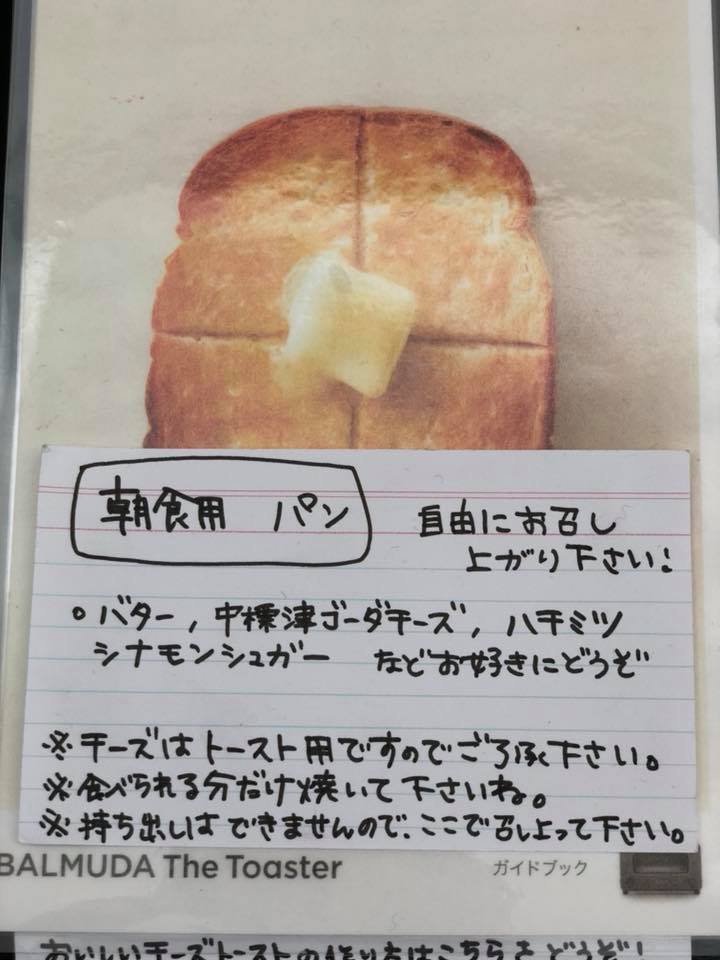 朝食用 パン
自由にお召し
上がり下さい!
○バター, 中標津ゴーダチーズ, ハチミツ
シナモンシュガー などお好きにどうぞ
※チーズはトースト用ですのでご了承下さい。
※食べられる分だけ焼いて下さいね。
※持ち出しはできませんので、ここで召し上って下さい。
BALMUDA The Toaster ガイドブック
おいしいチーズトーストの作り方はこちらをどうぞ!